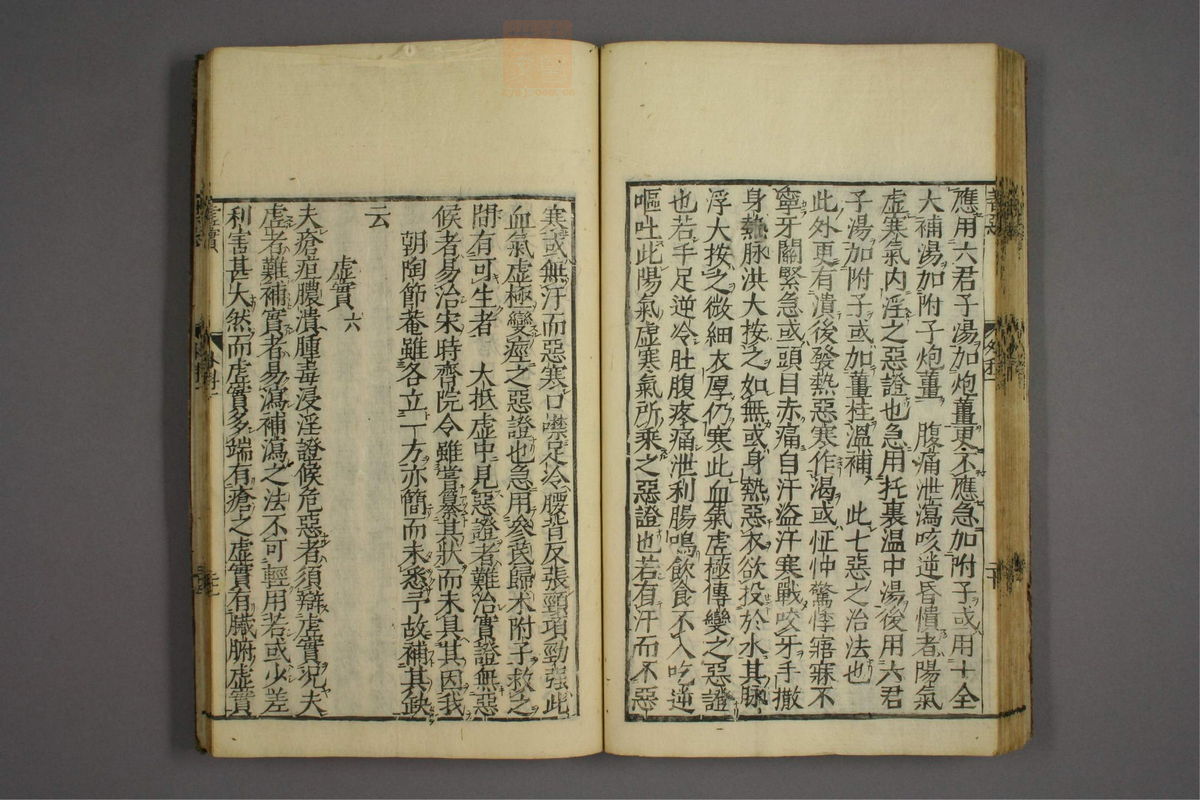 應用六君子湯加炮薑更不應急加附子或用十全
大補湯加附子炮薑 腹痛泄瀉咳逆昏憒者陽氣
虛寒氣内淫之惡證也急用托裏温中湯後用六君
子湯加附子或加薑桂溫補 此七惡之治法也
此外更有潰後發熱惡寒作渴或怔忡驚悸寤寐不
寧牙關緊急或頭目赤痛自汗盗汗寒戰咬牙手撒
身熱脉洪大按之如無或身熱惡衣欲投於水其脉
浮大按之微細衣厚仍寒此血氣虛極傳變之惡證
也若手足逆冷肚腹疼痛泄利腸鳴飲食不入吃逆
嘔吐此陽氣虛寒氣所乘之惡證也若有汗而不惡
寒或無汗而惡寒口噤足冷腰背反張頸項勁强此
血氣虛極變痙之惡證也急用參芪歸朮附子救之
間有可生者 大抵虛中見惡證者難治實證無惡
候者易治宋時齊院令雖嘗纂其狀而未具其因我
朝陶節菴雖各立一方亦簡而未悉予故補其缺
云
虛實 六
夫瘡疽膿潰腫毒浸淫證候危惡者須辯虛實況夫
虛者難補實者易瀉補瀉之法不可輕用若或少差
利害甚大然而虛實多端有瘡之虛實有臟腑虛實